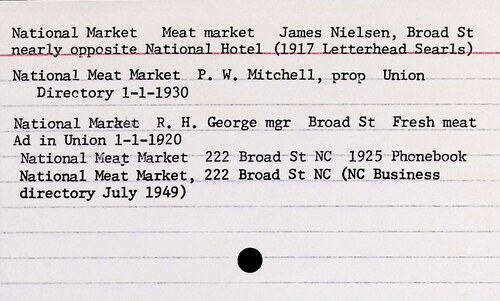 National Market   Meat market   James Nielsen, Broad St
nearly opposite National Hotel (1917 Letterhead Searls)
National Meat Market  P. W. Mitchell, prop  Union
Directory 1-1-1930
National Market  R. H. George mgr  Broad St  Fresh meat
Ad in Union 1-1-1920
National Meat Market  222 Broad St NC  1925 Phonebook
National Meat Market, 222 Broad St NC (NC Business
directory July 1949)